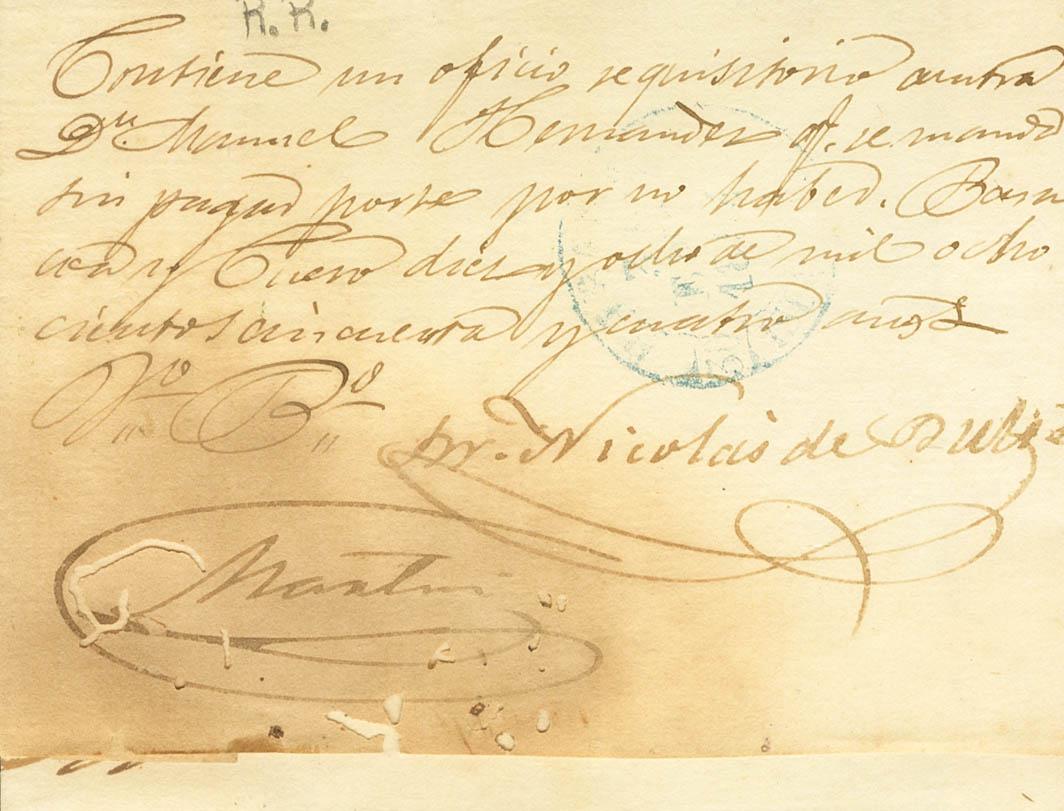 R. R.
Contiene un oficio requisitorio contra
Dn. Manuel Hernandez q. se manda
sin pagar porte por no haber. Bara
coa y Enero diez y ocho de mil ocho
cientos cincuenta y cuatro años
Vo. Bo.
Nicolás de
Martin